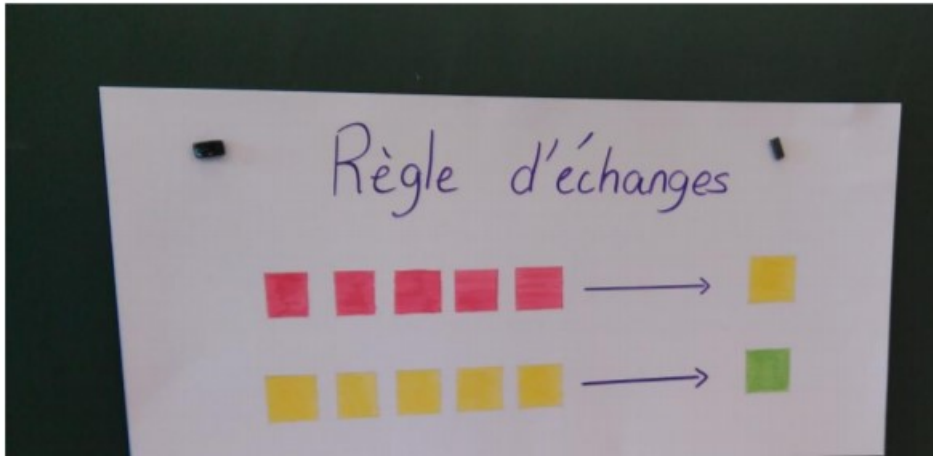 Règle d'échanges